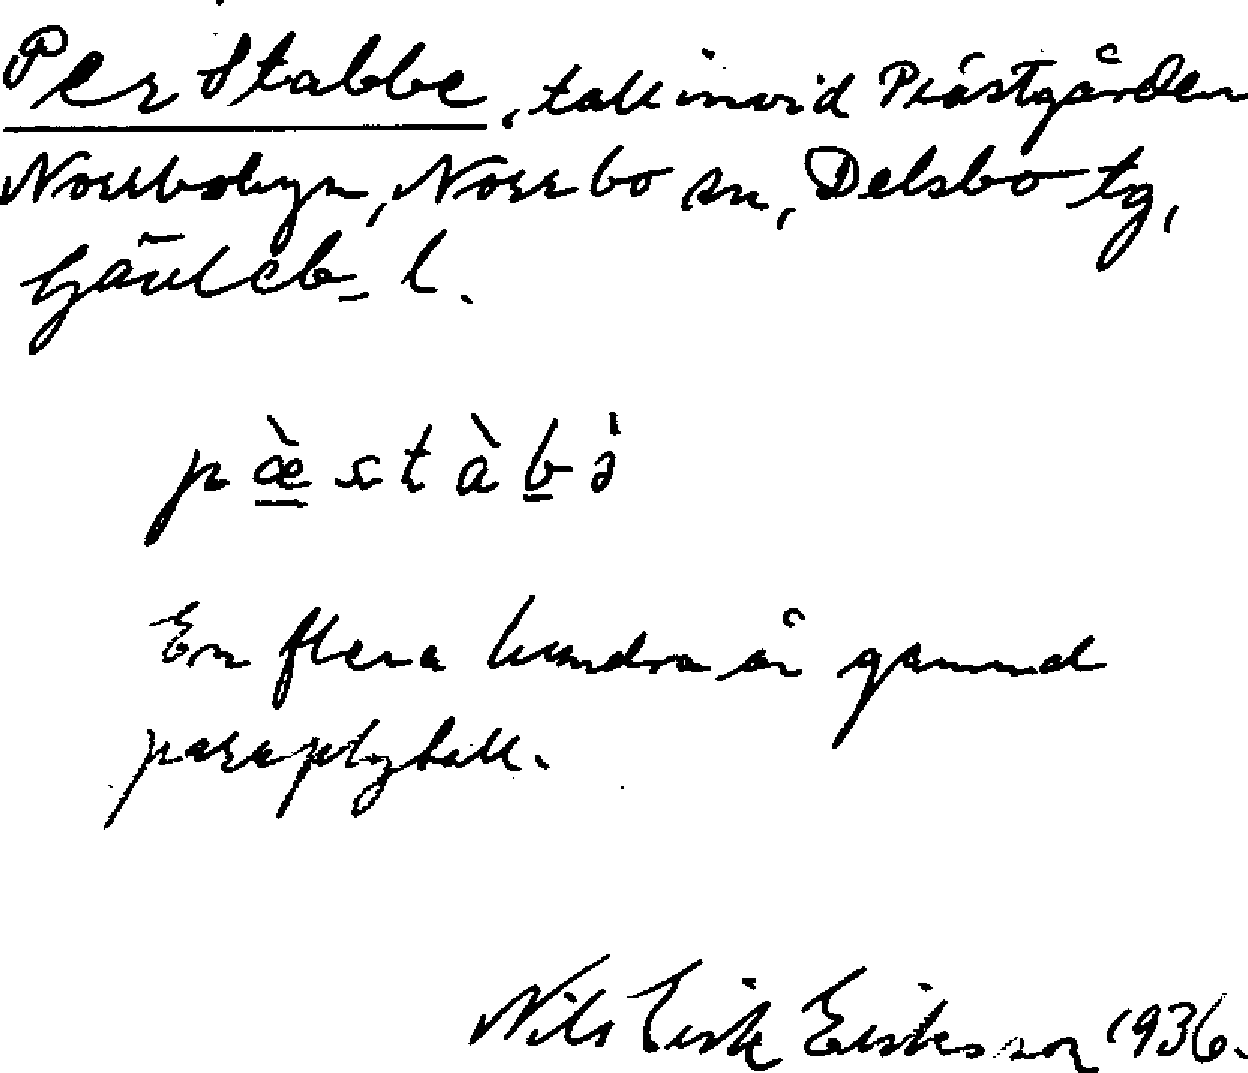 Per Stabbe, tall invid Prästgården
Norrbobyn, Norrbo sn, Delsbo tg,
Gävleb. l.
pæ̀stàbə̀
En flera hundra år gammal
paraplytall.
Nils Erik Eriksson 1936.